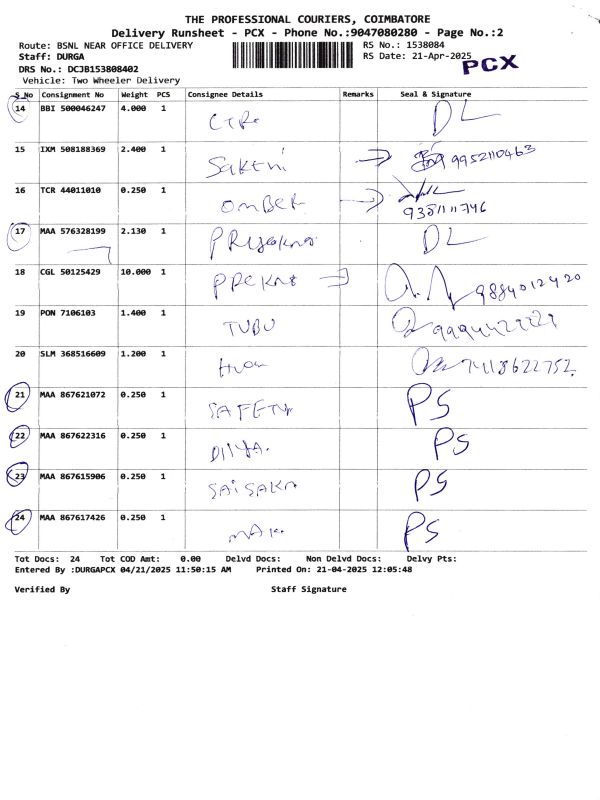 THE PROFESSIONAL COURIERS, COIMBATORE
Delivery Runsheet - PCX - Phone No.:9047080280 - Page No.:2
Route: BSNL NEAR OFFICE DELIVERY
RS No.: 1538084
Staff: DURGA
RS Date: 21-Apr-2025
PCX
DRS No.: DCJB153808402
Vehicle: Two Wheeler Delivery
S_No Consignment No Weight PCS Consignee Details Remarks Seal & Signature
14 BBI 500046247 4.000 1 DL
15 IXM 508188369 2.400 1 Sakthi 9952110463
16 TCR 44011010 0.250 1
17 MAA 576328199 2.130 1 DL
18 CGL 50125429 10.000 1 9884012420
19 PON 7106103 1.400 1 TUBU
20 SLM 368516609 1.200 1
21 MAA 867621072 0.250 1 SAFETY PS
22 MAA 867622316 0.250 1 DIYA. PS
23 MAA 867615906 0.250 1 PS
24 MAA 867617426 0.250 1 PS
Tot Docs: 24 Tot COD Amt: 0.00 Delvd Docs: Non Delvd Docs: Delvy Pts:
Entered By :DURGAPCX 04/21/2025 11:50:15 AM Printed On: 21-04-2025 12:05:48
Verified By Staff Signature